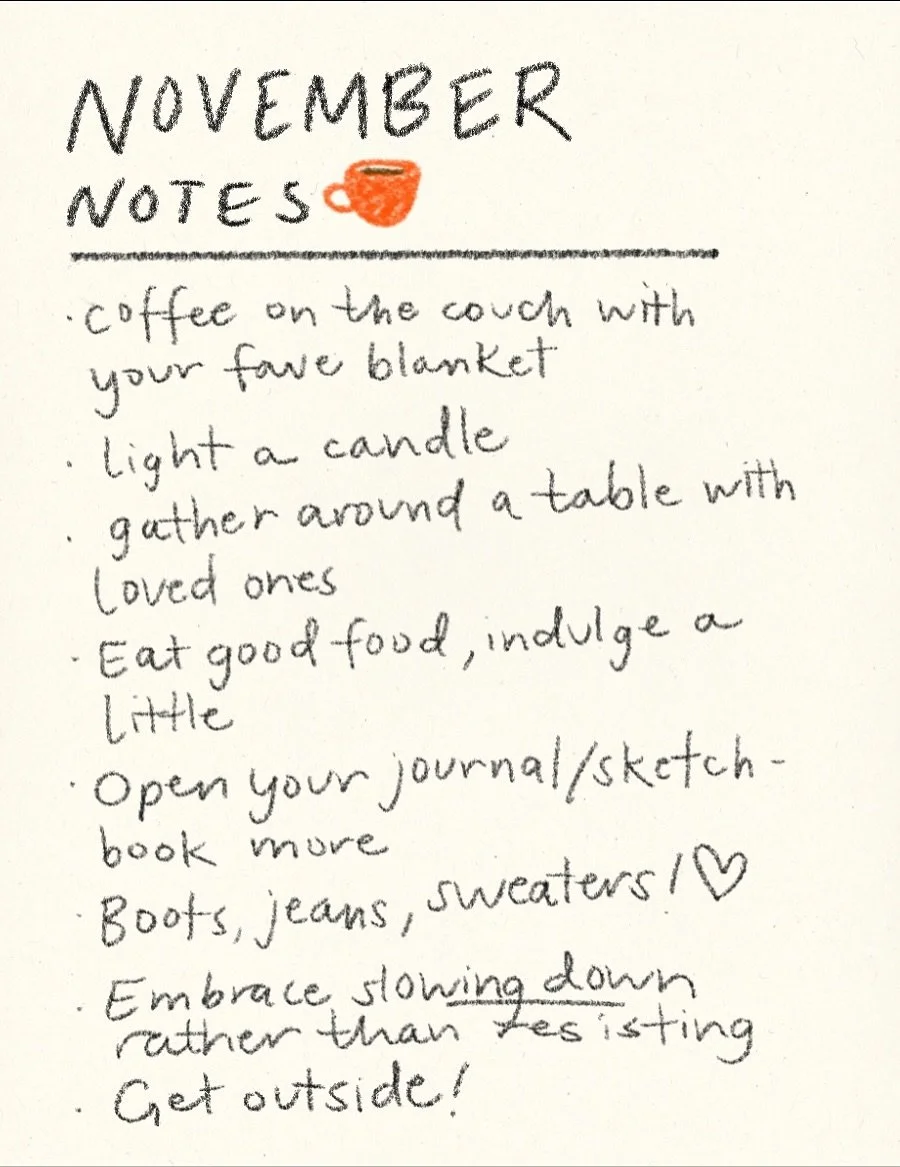 NOVEMBER
NOTES
· coffee on the couch with
your fave blanket
· Light a candle
· gather around a table with
Loved ones
· Eat good food, indulge a
little
· Open your journal/sketch-
book more
· Boots, jeans, sweaters! ♡
· Embrace slowing down
rather than resisting
· Get outside!